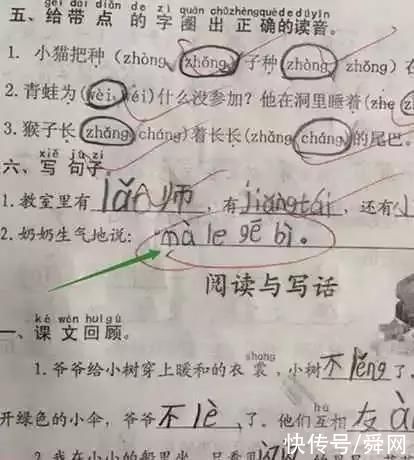 gěi dài diǎn de zì quān chū zhèng què de dú yīn
五、给带点的字圈出正确的读音。
1. 小猫把种(zhòng zhǒng)子种(zhòng zhǒng)在
2. 青蛙为(wèi wéi)什么没参加?他在洞里睡着(zhe
3. 猴子长(zhǎng cháng)着长长(zhǎng cháng)的尾巴。
xiě jù zi
六、写句子。
1. 教室里有 lǎo师,有 jiǎngtái,还有小
2. 奶奶生气地说: mà le gē bì。
阅读与写话
kè wén huí gù
一、课文回顾。
shang
1. 爷爷给小树穿上暖和的衣裳,小树不lěng了。
hù
开绿色的小伞,爷爷不lè了。他们互相友ài
2. 我在小小的船里坐,只看见
快传号/舜网